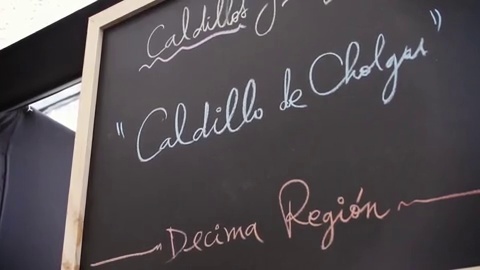 Caldillos
"Caldillo de Cholgas"
Decima Región